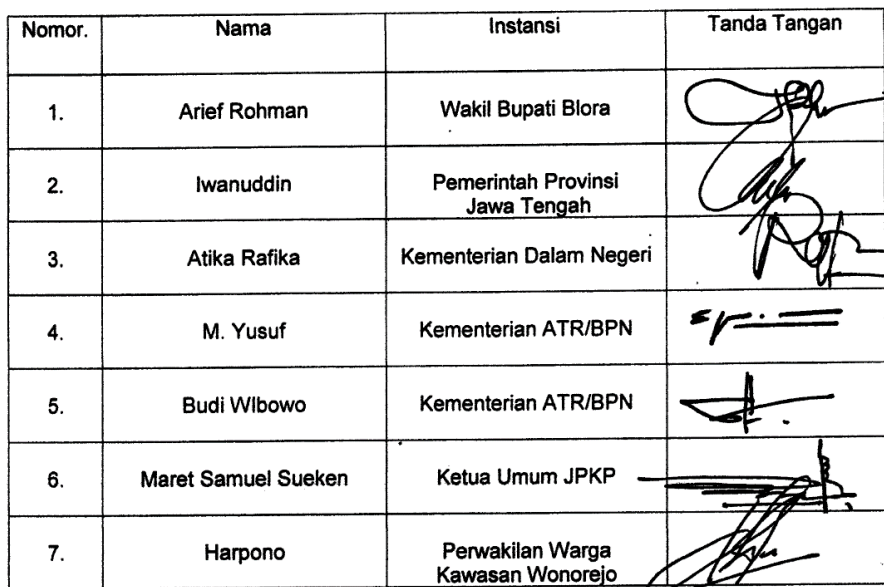 Nomor. Nama Instansi Tanda Tangan
1. Arief Rohman Wakil Bupati Blora
2. Iwanuddin Pemerintah Provinsi
Jawa Tengah
3. Atika Rafika Kementerian Dalam Negeri
4. M. Yusuf Kementerian ATR/BPN
5. Budi WIbowo Kementerian ATR/BPN
6. Maret Samuel Sueken Ketua Umum JPKP
7. Harpono Perwakilan Warga
Kawasan Wonorejo